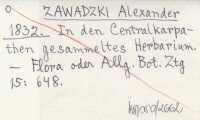 ZAWADZKI Alexander
1832. In den Centralkarpa-
then gesammeltes Herbarium.
— Flora oder Allg. Bot. Ztg
15: 648.